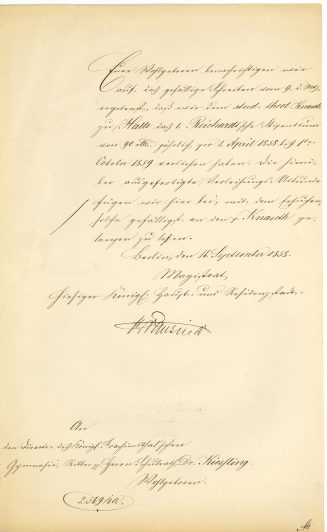 Euer Wohlgeboren benachrichtigen wir
auf das gefällige Schreiben vom 9. d. Mts.
ergebenst, daß wir dem stud. theol. Knauth
zu Halle das v. Reichardt'sche Stipendium
von 90 rtl. jährlich pr. 1. April 1858 bis 1ten
October 1859 verliehen haben. Die hierü-
ber ausgefertigte Verleihungs-Urkunde
fügen wir hier bei, mit dem Ersuchen,
solche gefälligst an den p. Knauth ge-
langen zu lassen.
Berlin, den 16. September 1858.
Magistrat
hiesiger Königl. Haupt- und Residenzstadt.
An
den Director des Königl. Joachimsthal'schen
Gymnasii, Ritter p. Herrn Schulrath Dr. Kiessling
Wohlgeboren.